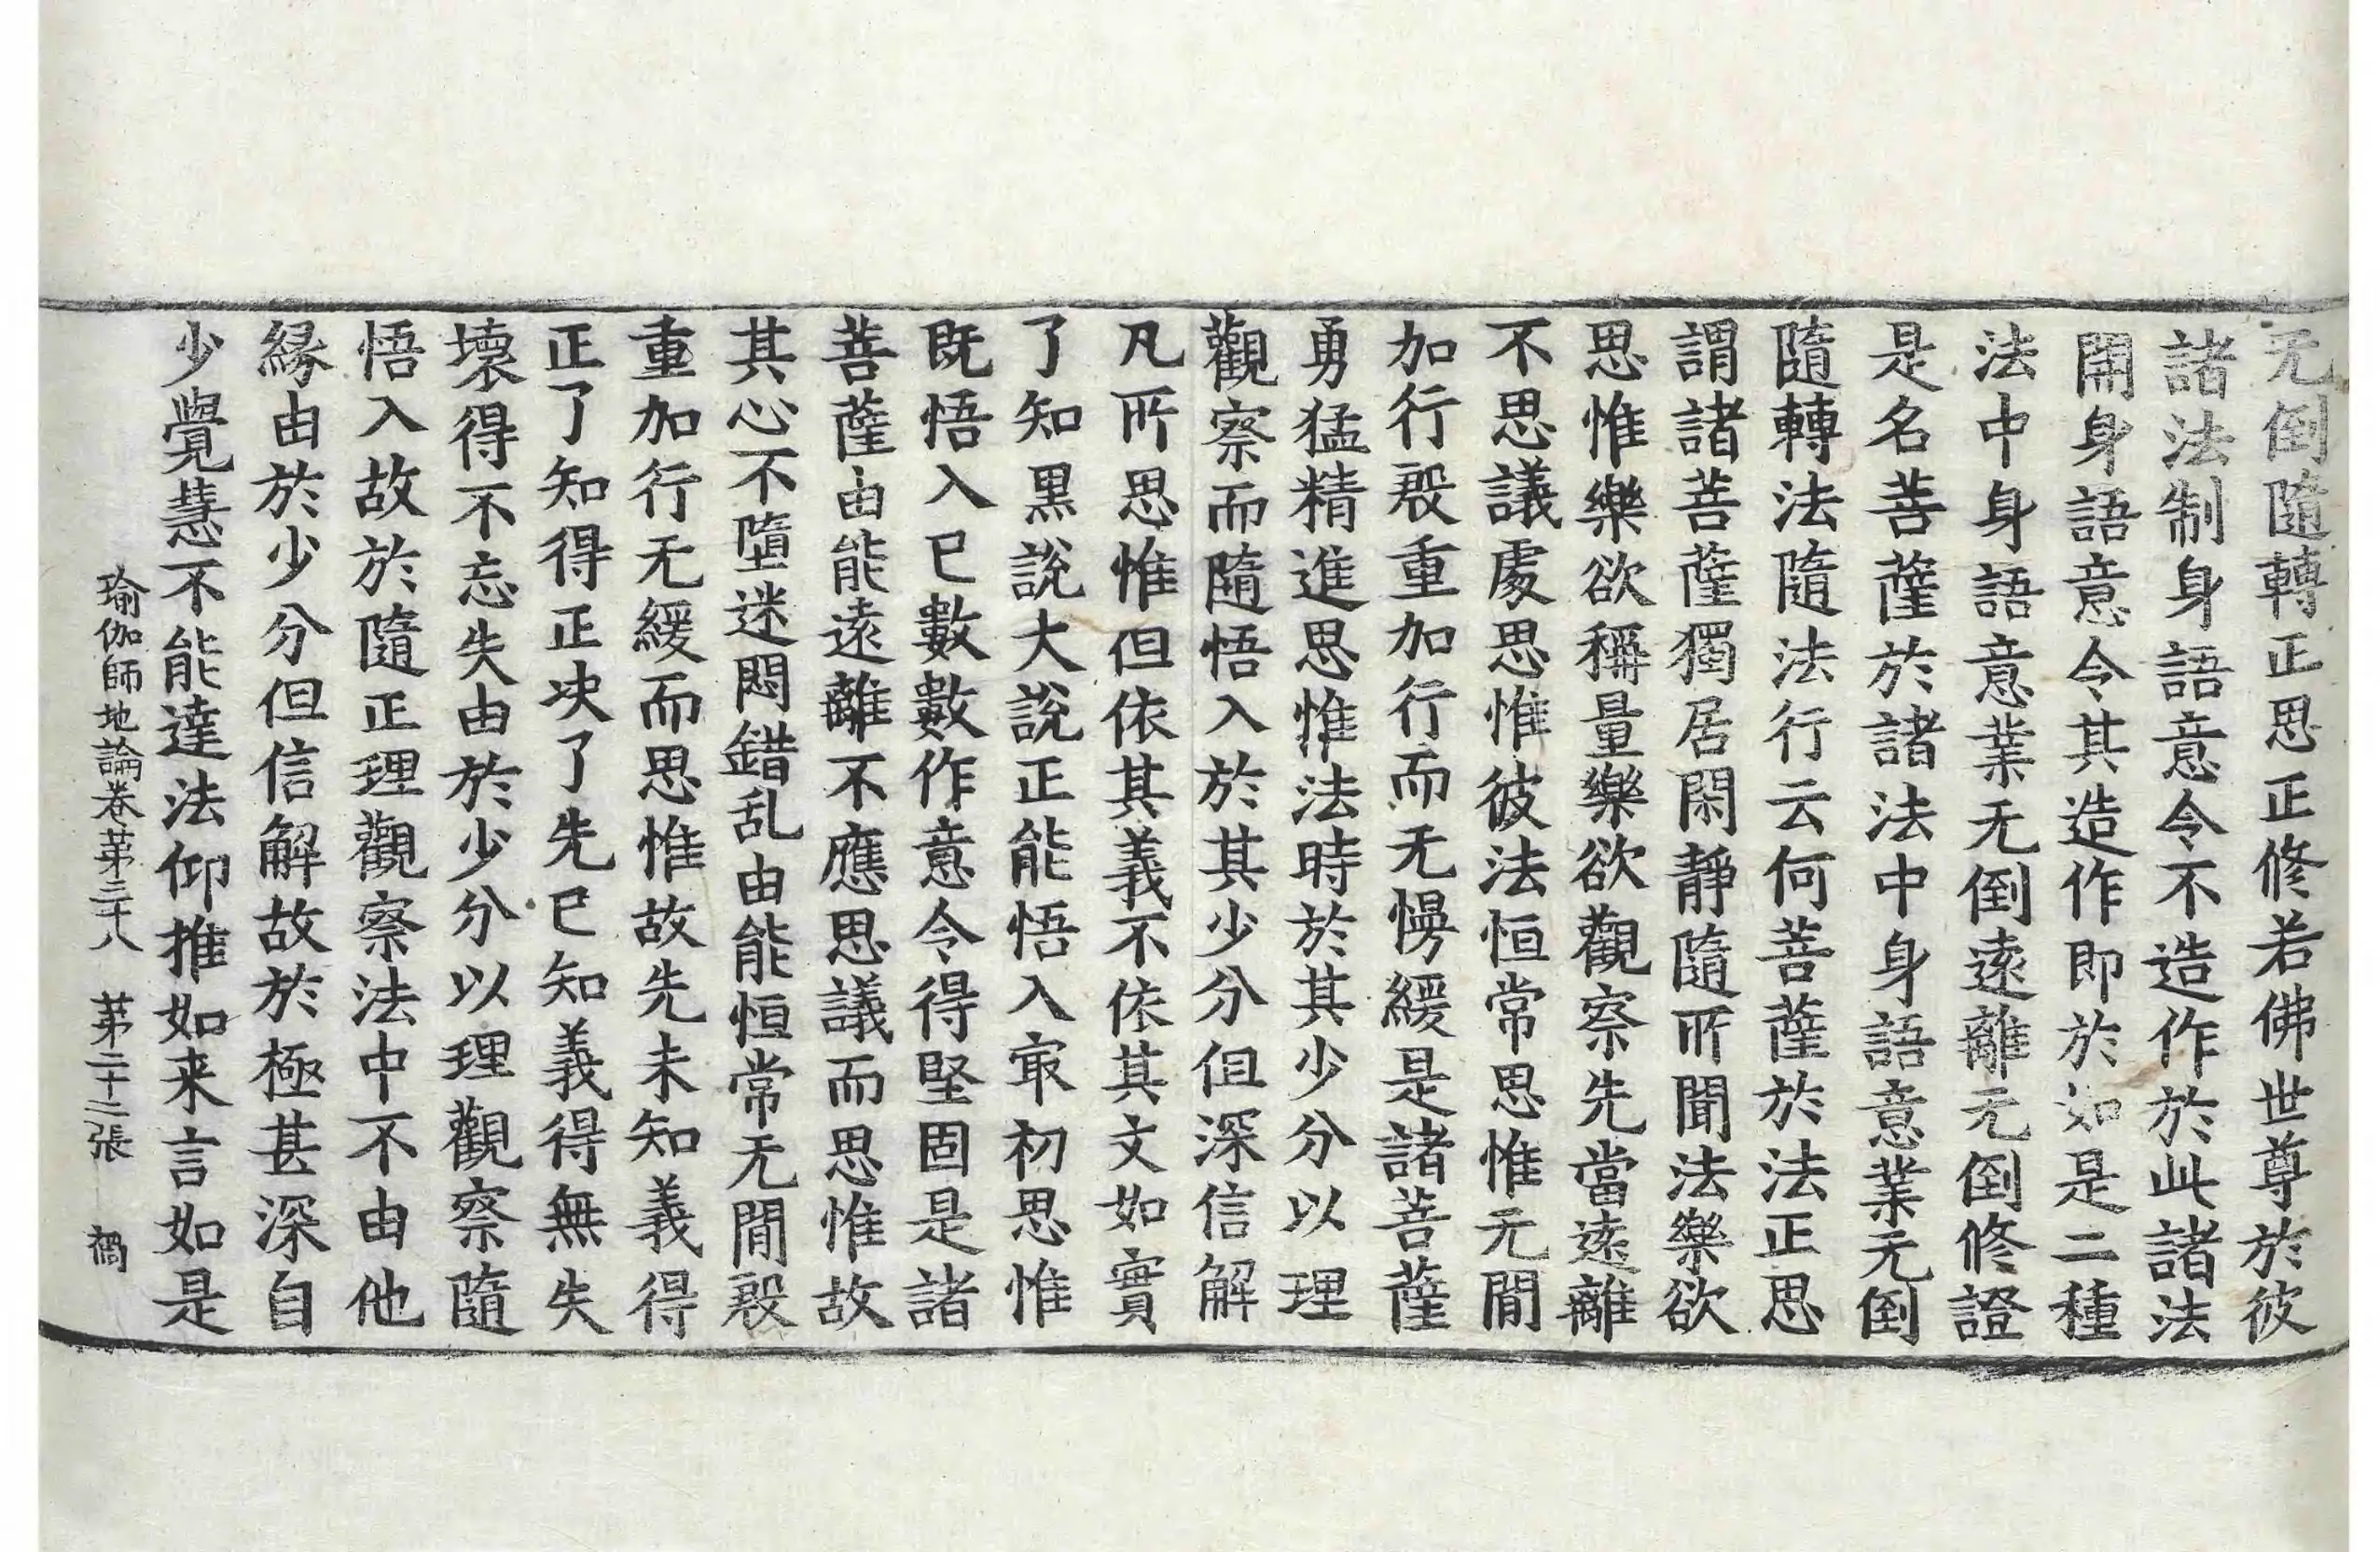 无倒隨轉正思正修若佛世尊於彼
諸法制身語意令不造作於此諸法
開身語意令其造作即於如是二種
法中身語意業无倒遠離无倒修證
是名菩薩於諸法中身語意業无倒
隨轉法隨法行云何菩薩於法正思
謂諸菩薩獨居閑靜隨所聞法樂欲
思惟樂欲稱量樂欲觀察先當遠離
不思議處思惟彼法恒常思惟无間
加行殷重加行而无慢緩是諸菩薩
勇猛精進思惟法時於其少分以理
觀察而隨悟入於其少分但深信解
凡所思惟但依其義不依其文如實
了知黑說大說正能悟入㝡初思惟
既悟入已數數作意令得堅固是諸
菩薩由能遠離不應思議而思惟故
其心不墮迷悶錯乱由能恒常无間殷
重加行无緩而思惟故先未知義得
正了知得正决了先已知義得無失
壞得不忘失由於少分以理觀察隨
悟入故於隨正理觀察法中不由他
緣由於少分但信解故於極甚深自
少覺慧不能達法仰推如来言如是
瑜伽師地論卷苐三十八　苐二十二張